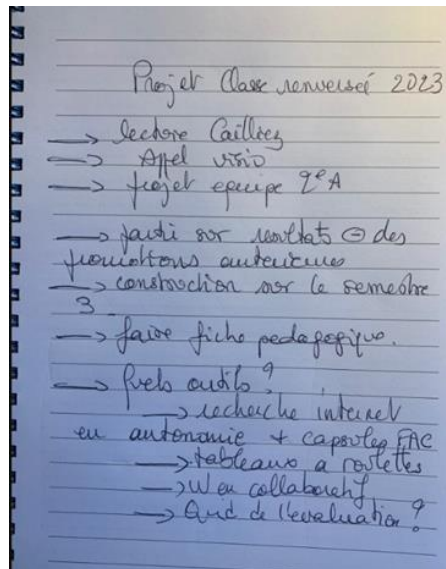 Projet Classe renversée 2023
→ lecture Cailliez
→ Appel visio
→ projet equipe 2e A
→ parti sur resultats ⊖ des
promotions anterieures
→ construction sur le semestre
3
→ faire fiche pedagogique.
→ Quels outils ?
→ recherche internet
en autonomie + capsules FAC
→ tableaux a roulettes
→ W en collaboratif
→ Quid de l'evaluation ?